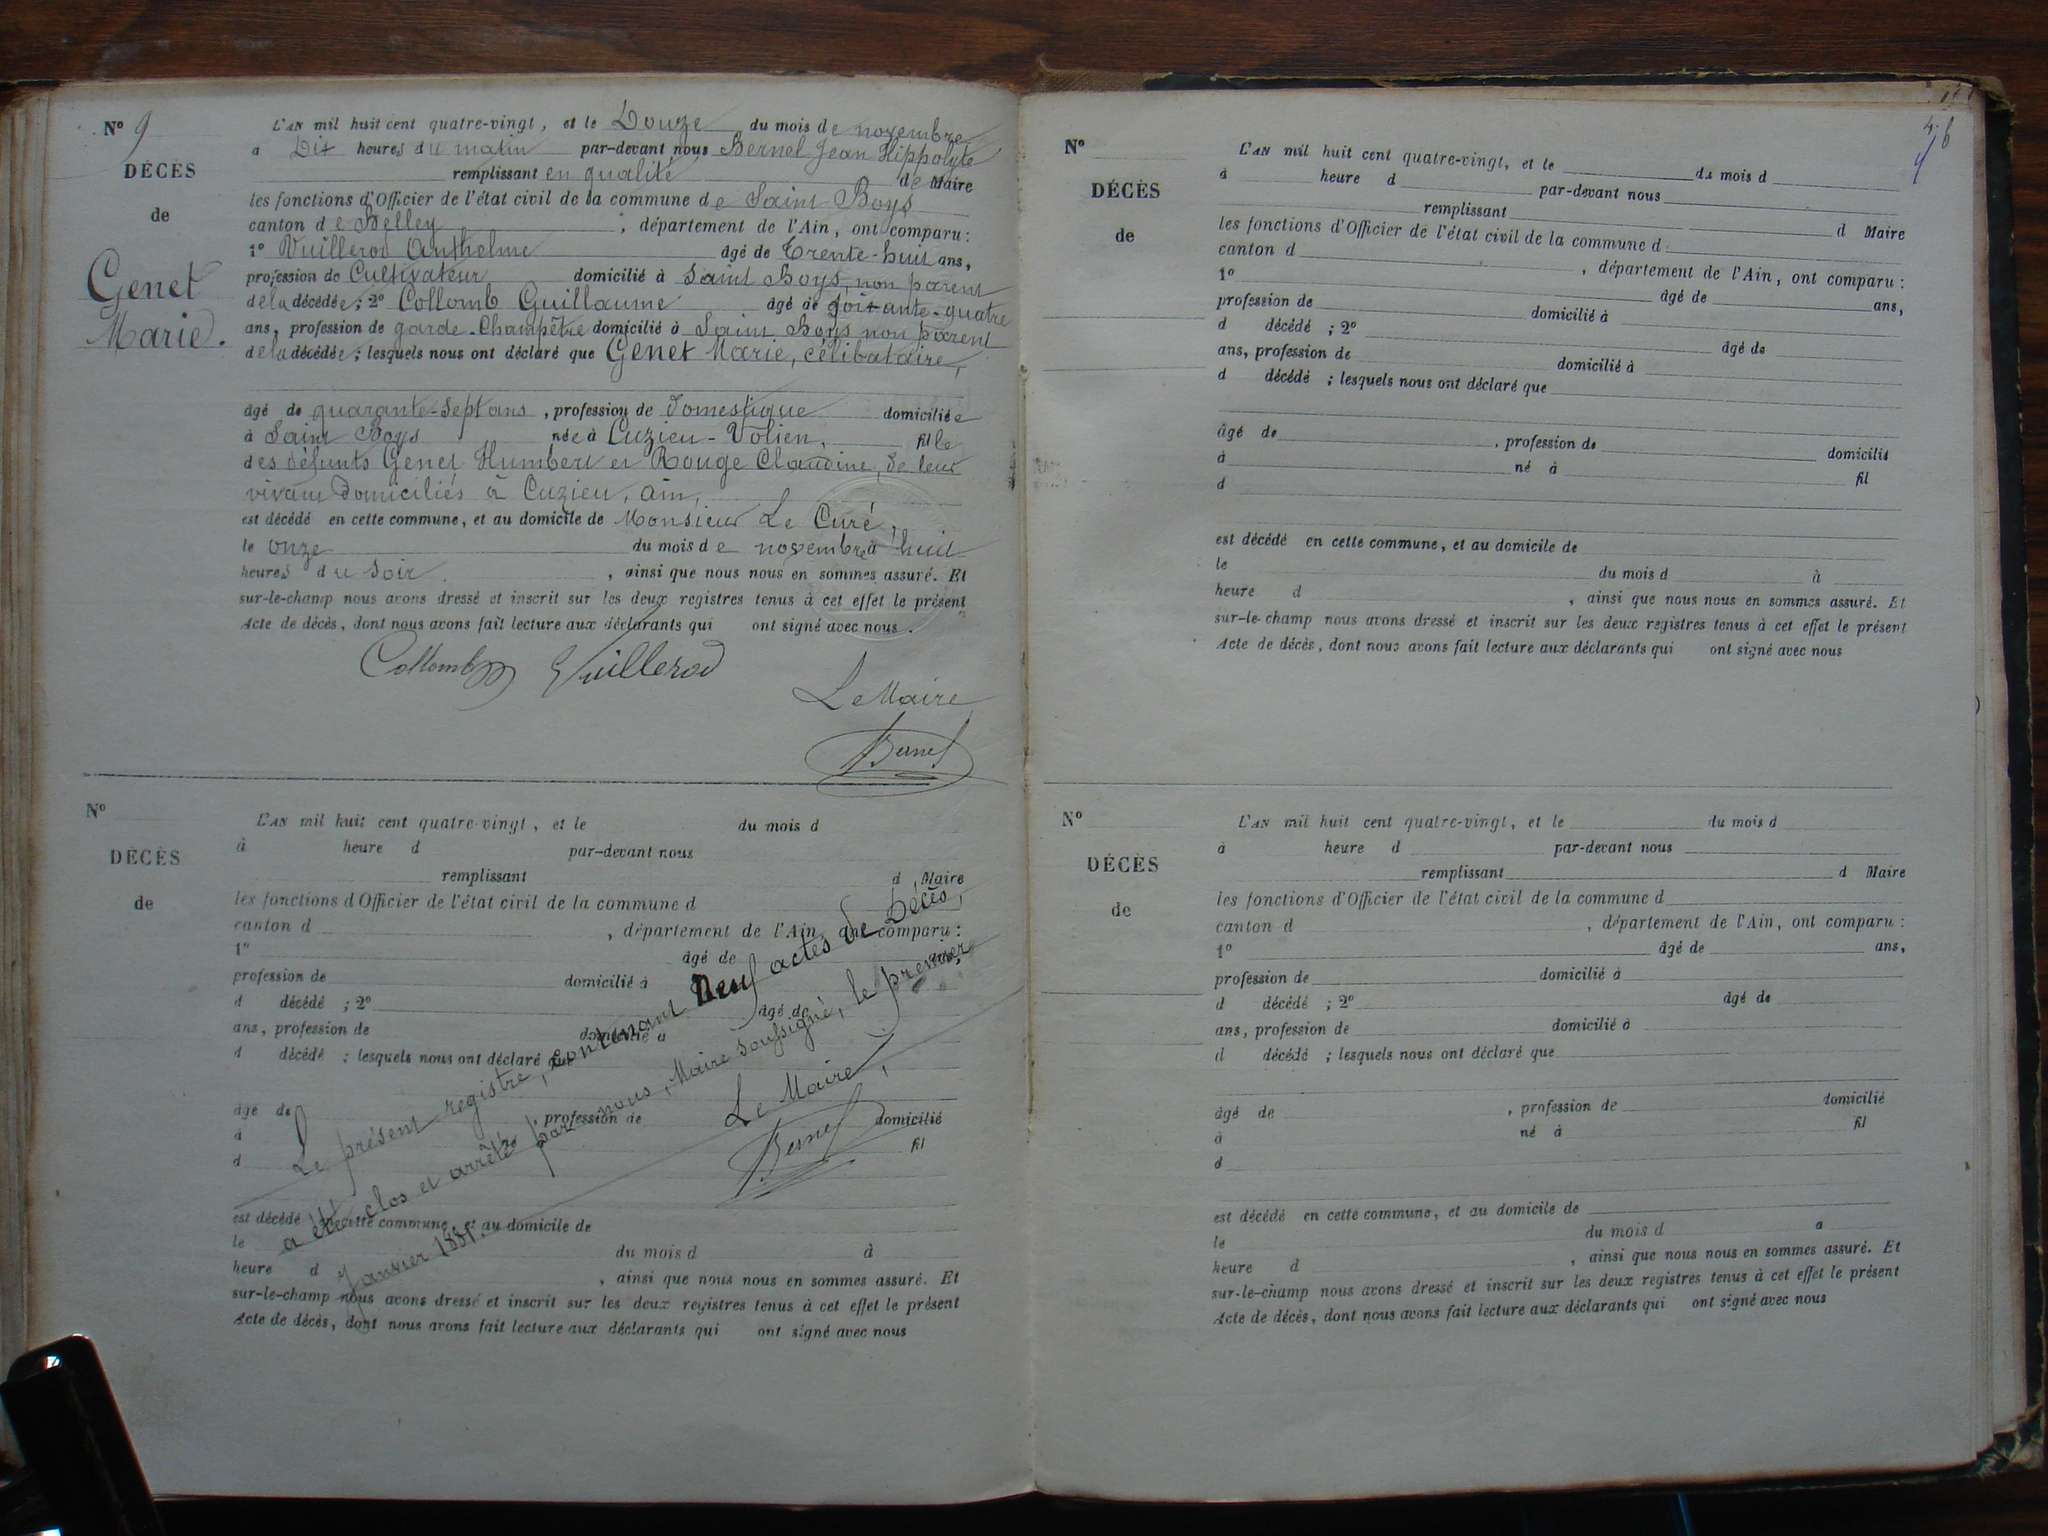 Nº 9
DÉCÈS
de
Genet
Marie.
L'AN mil huit cent quatre-vingt, et le Douze du mois de novembre
à Dix heures du matin par-devant nous Bernel Jean Hippolyte
remplissant en qualité de Maire
les fonctions d'Officier de l'état civil de la commune de Saint Boys
canton de Belley, département de l'Ain, ont comparu:
1º Vuillerod Anthelme âgé de Trente-huit ans,
profession de Cultivateur domicilié à Saint Boys, non parent
de la décédée; 2º Collomb Guillaume âgé de soixante-quatre
ans, profession de garde-Champêtre domicilié à Saint Boys non parent
de la décédée; lesquels nous ont déclaré que Genet Marie, célibataire,
âgé de quarante-sept ans, profession de domestique domiciliée
à Saint Boys née à Cuzieu-Volien, fille
des défunts Genet Humbert et Rouge Claudine, de leur
vivant domiciliés à Cuzieu, ain,
est décédé en cette commune, et au domicile de Monsieur Le Curé,
le onze du mois de novembre à huit
heures du soir, ainsi que nous nous en sommes assuré. Et
sur-le-champ nous avons dressé et inscrit sur les deux registres tenus à cet effet le présent
Acte de décès, dont nous avons fait lecture aux déclarants qui ont signé avec nous.
Collomb Vuillerod
Le Maire
Bernel
Nº
DÉCÈS
de
L'AN mil huit cent quatre-vingt, et le du mois d
à heure d par-devant nous
remplissant d Maire
les fonctions d'Officier de l'état civil de la commune d
canton d , département de l'Ain, ont comparu:
1º âgé de ans,
profession de domicilié à
d décédé ; 2º âgé de
ans, profession de domicilié à
d décédé ; lesquels nous ont déclaré que
âgé de , profession de domicilié
à fil
d
est décédé en cette commune, et au domicile de
le du mois d à
heure d , ainsi que nous nous en sommes assuré. Et
sur-le-champ nous avons dressé et inscrit sur les deux registres tenus à cet effet le présent
Acte de décès, dont nous avons fait lecture aux déclarants qui ont signé avec nous
Le présent registre, contenant Neuf actes de Décès,
a été clos et arrêté par nous, Maire soussigné, le premier
Janvier 1881.
Le Maire,
Bernel
46
Nº
DÉCÈS
de
L'AN mil huit cent quatre-vingt, et le du mois d
à heure d par-devant nous
remplissant d Maire
les fonctions d'Officier de l'état civil de la commune d
canton d , département de l'Ain, ont comparu:
1º âgé de ans,
profession de domicilié à
d décédé ; 2º âgé de
ans, profession de domicilié à
d décédé ; lesquels nous ont déclaré que
âgé de , profession de domicilié
à né à fil
d
est décédé en cette commune, et au domicile de
le du mois d à
heure d , ainsi que nous nous en sommes assuré. Et
sur-le-champ nous avons dressé et inscrit sur les deux registres tenus à cet effet le présent
Acte de décès, dont nous avons fait lecture aux déclarants qui ont signé avec nous
Nº
DÉCÈS
de
L'AN mil huit cent quatre-vingt, et le du mois d
à heure d par-devant nous
remplissant d Maire
les fonctions d'Officier de l'état civil de la commune d
canton d , département de l'Ain, ont comparu:
1º âgé de ans,
profession de domicilié à
d décédé ; 2º âgé de
ans, profession de domicilié à
d décédé ; lesquels nous ont déclaré que
âgé de , profession de domicilié
à né à fil
d
est décédé en cette commune, et au domicile de
le du mois d à
heure d , ainsi que nous nous en sommes assuré. Et
sur-le-champ nous avons dressé et inscrit sur les deux registres tenus à cet effet le présent
Acte de décès, dont nous avons fait lecture aux déclarants qui ont signé avec nous